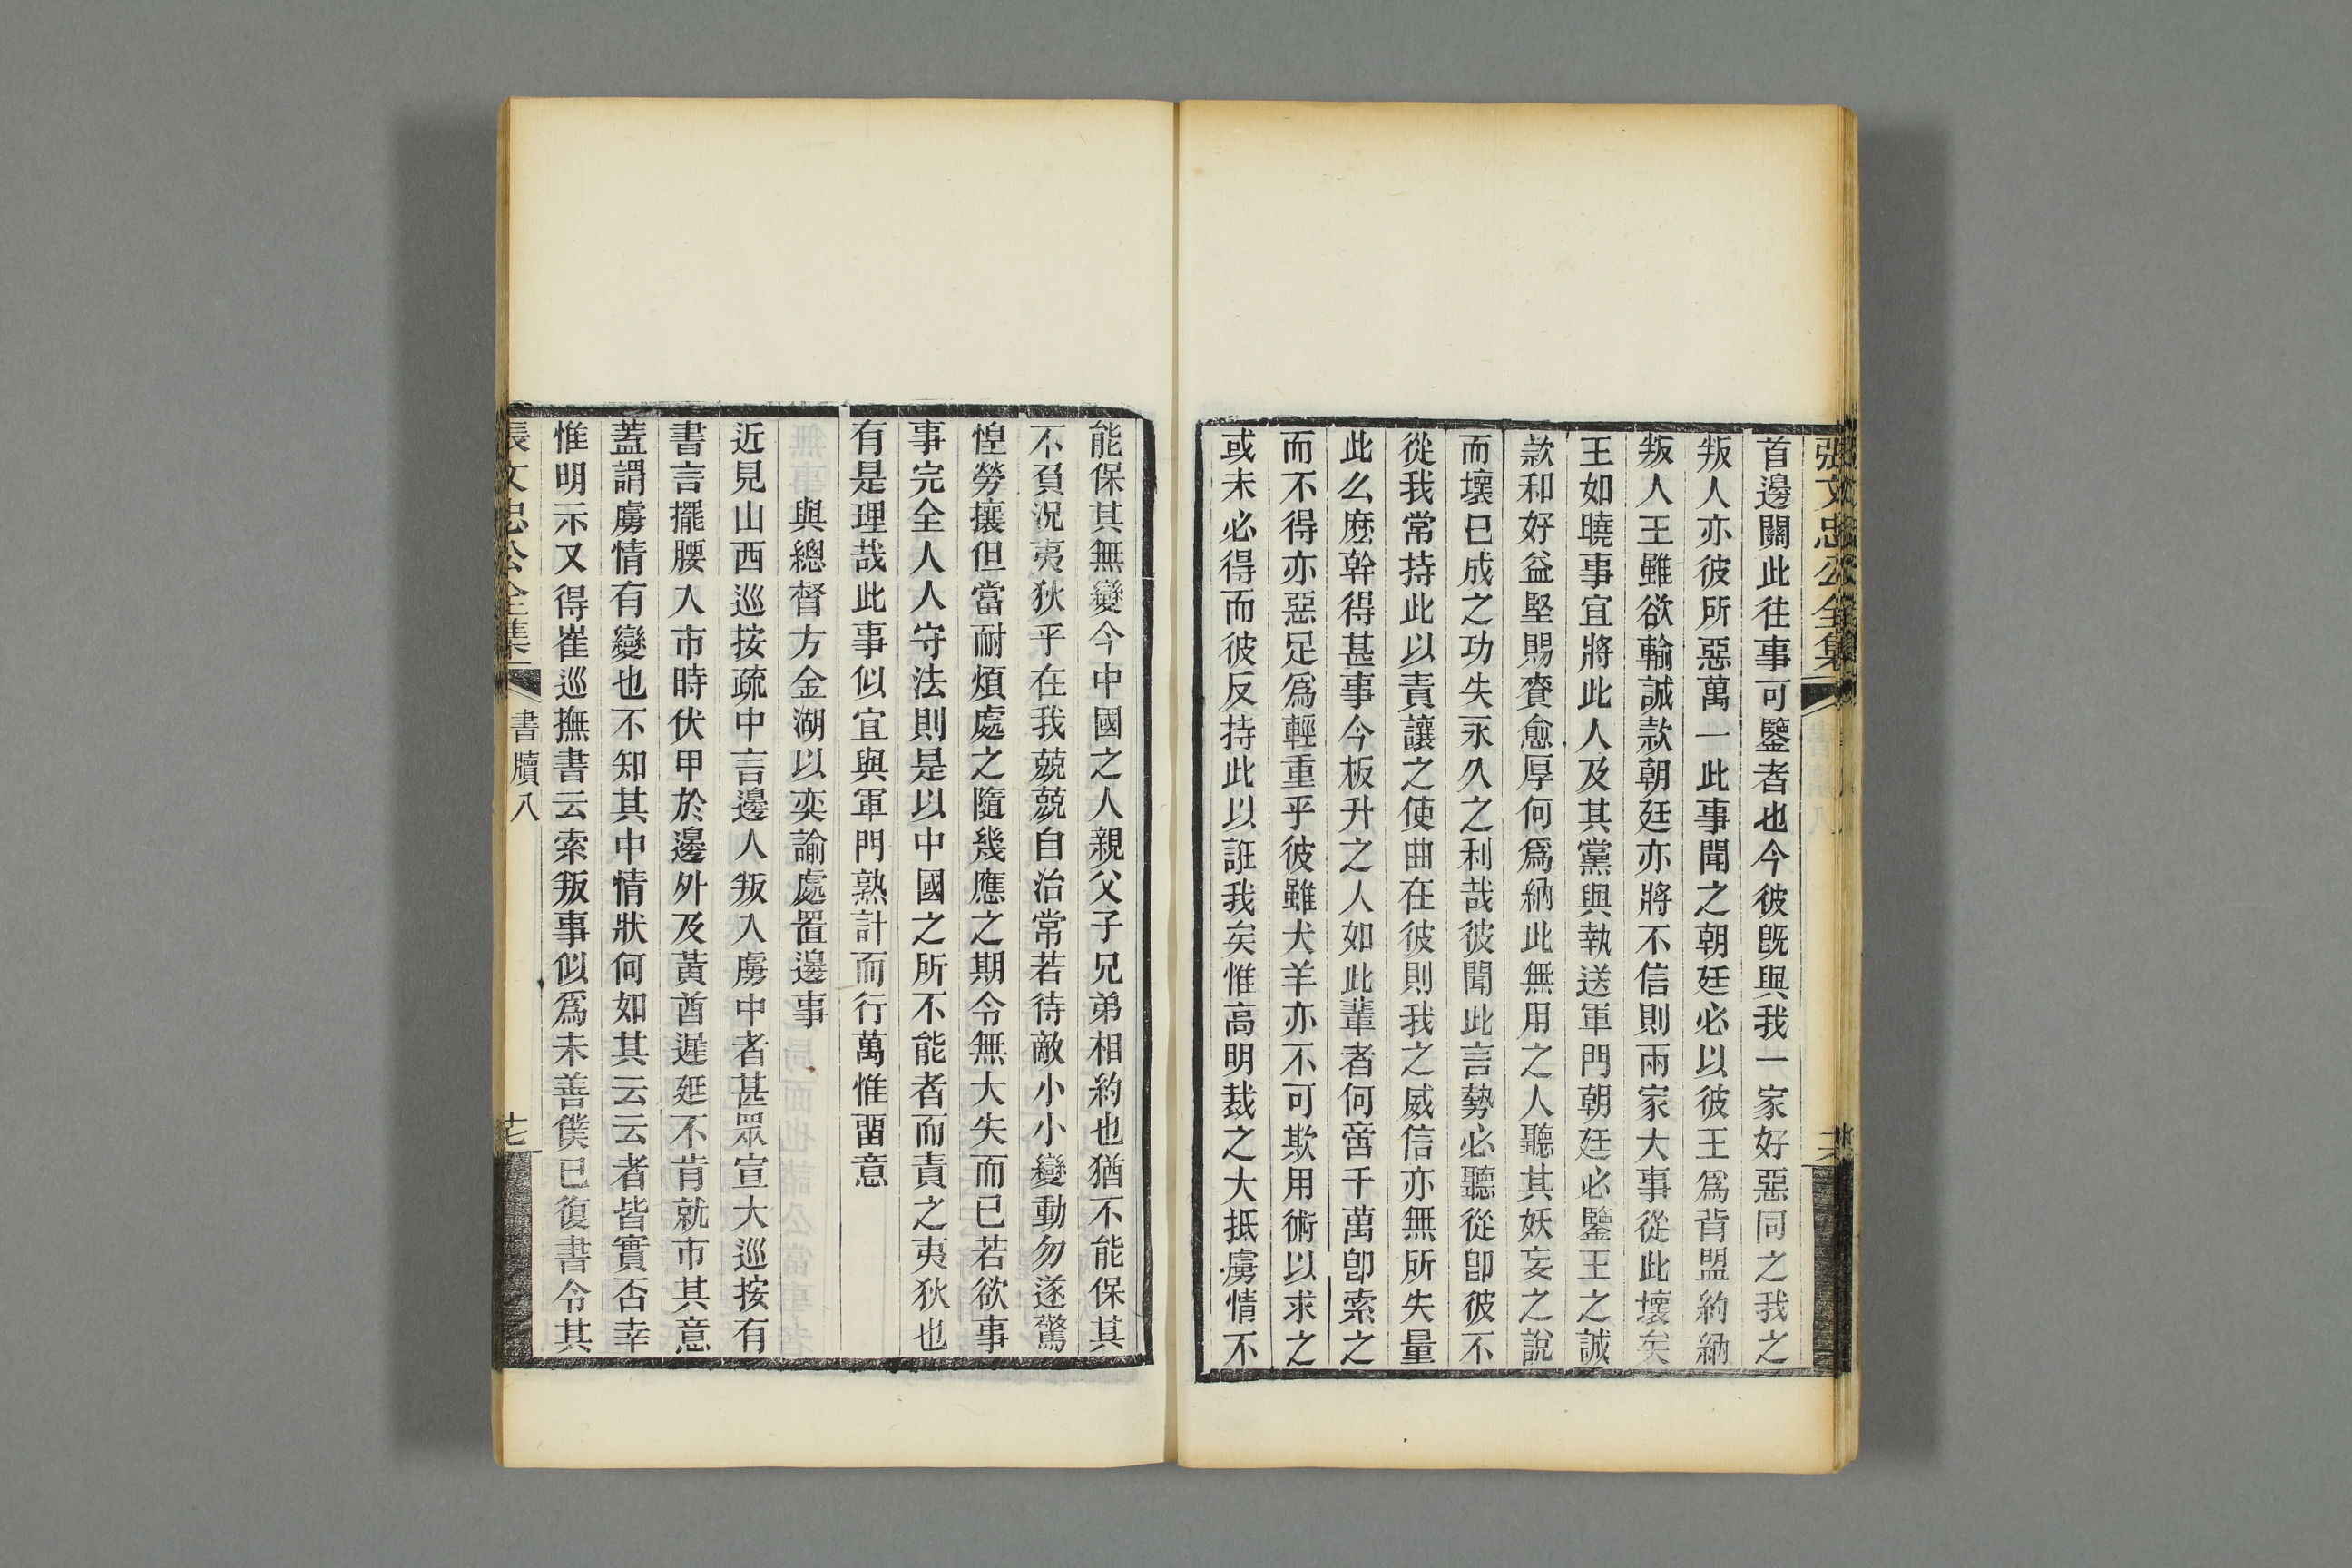 張文忠公全集
首邊關此往事可鑒者也今彼既與我一家好惡同之我之
叛人亦彼所惡萬一此事聞之朝廷必以彼王爲背盟約納
叛人王雖欲輸誠款朝廷亦將不信則兩家大事從此壞矣
王如曉事宜將此人及其黨與執送軍門朝廷必鑒王之誠
款和好益堅賜賚愈厚何爲納此無用之人聽其妖妄之說
而壞已成之功失永久之利哉彼聞此言勢必聽從卽彼不
從我常持此以責讓之使曲在彼則我之威信亦無所失量
此么麽幹得甚事今板升之人如此輩者何啻千萬卽索之
而不得亦惡足爲輕重乎彼雖犬羊亦不可欺用術以求之
或未必得而彼反持此以誑我矣惟高明裁之大抵虜情不
能保其無變今中國之人親父子兄弟相約也猶不能保其
不負況夷狄乎在我兢兢自治常若待敵小小變動勿遂驚
惶勞攘但當耐煩處之隨幾應之期令無大失而已若欲事
事完全人人守法則是以中國之所不能者而責之夷狄也
有是理哉此事似宜與軍門熟計而行萬惟畱意
與總督方金湖以奕諭處置邊事
近見山西巡按疏中言邊人叛入虜中者甚眾宣大巡按有
書言擺腰入市時伏甲於邊外及黃酋遲延不肯就市其意
蓋謂虜情有變也不知其中情狀何如其云云者皆實否幸
惟明示又得崔巡撫書云索叛事似爲未善僕已復書令其
張文忠公全集
書牘八